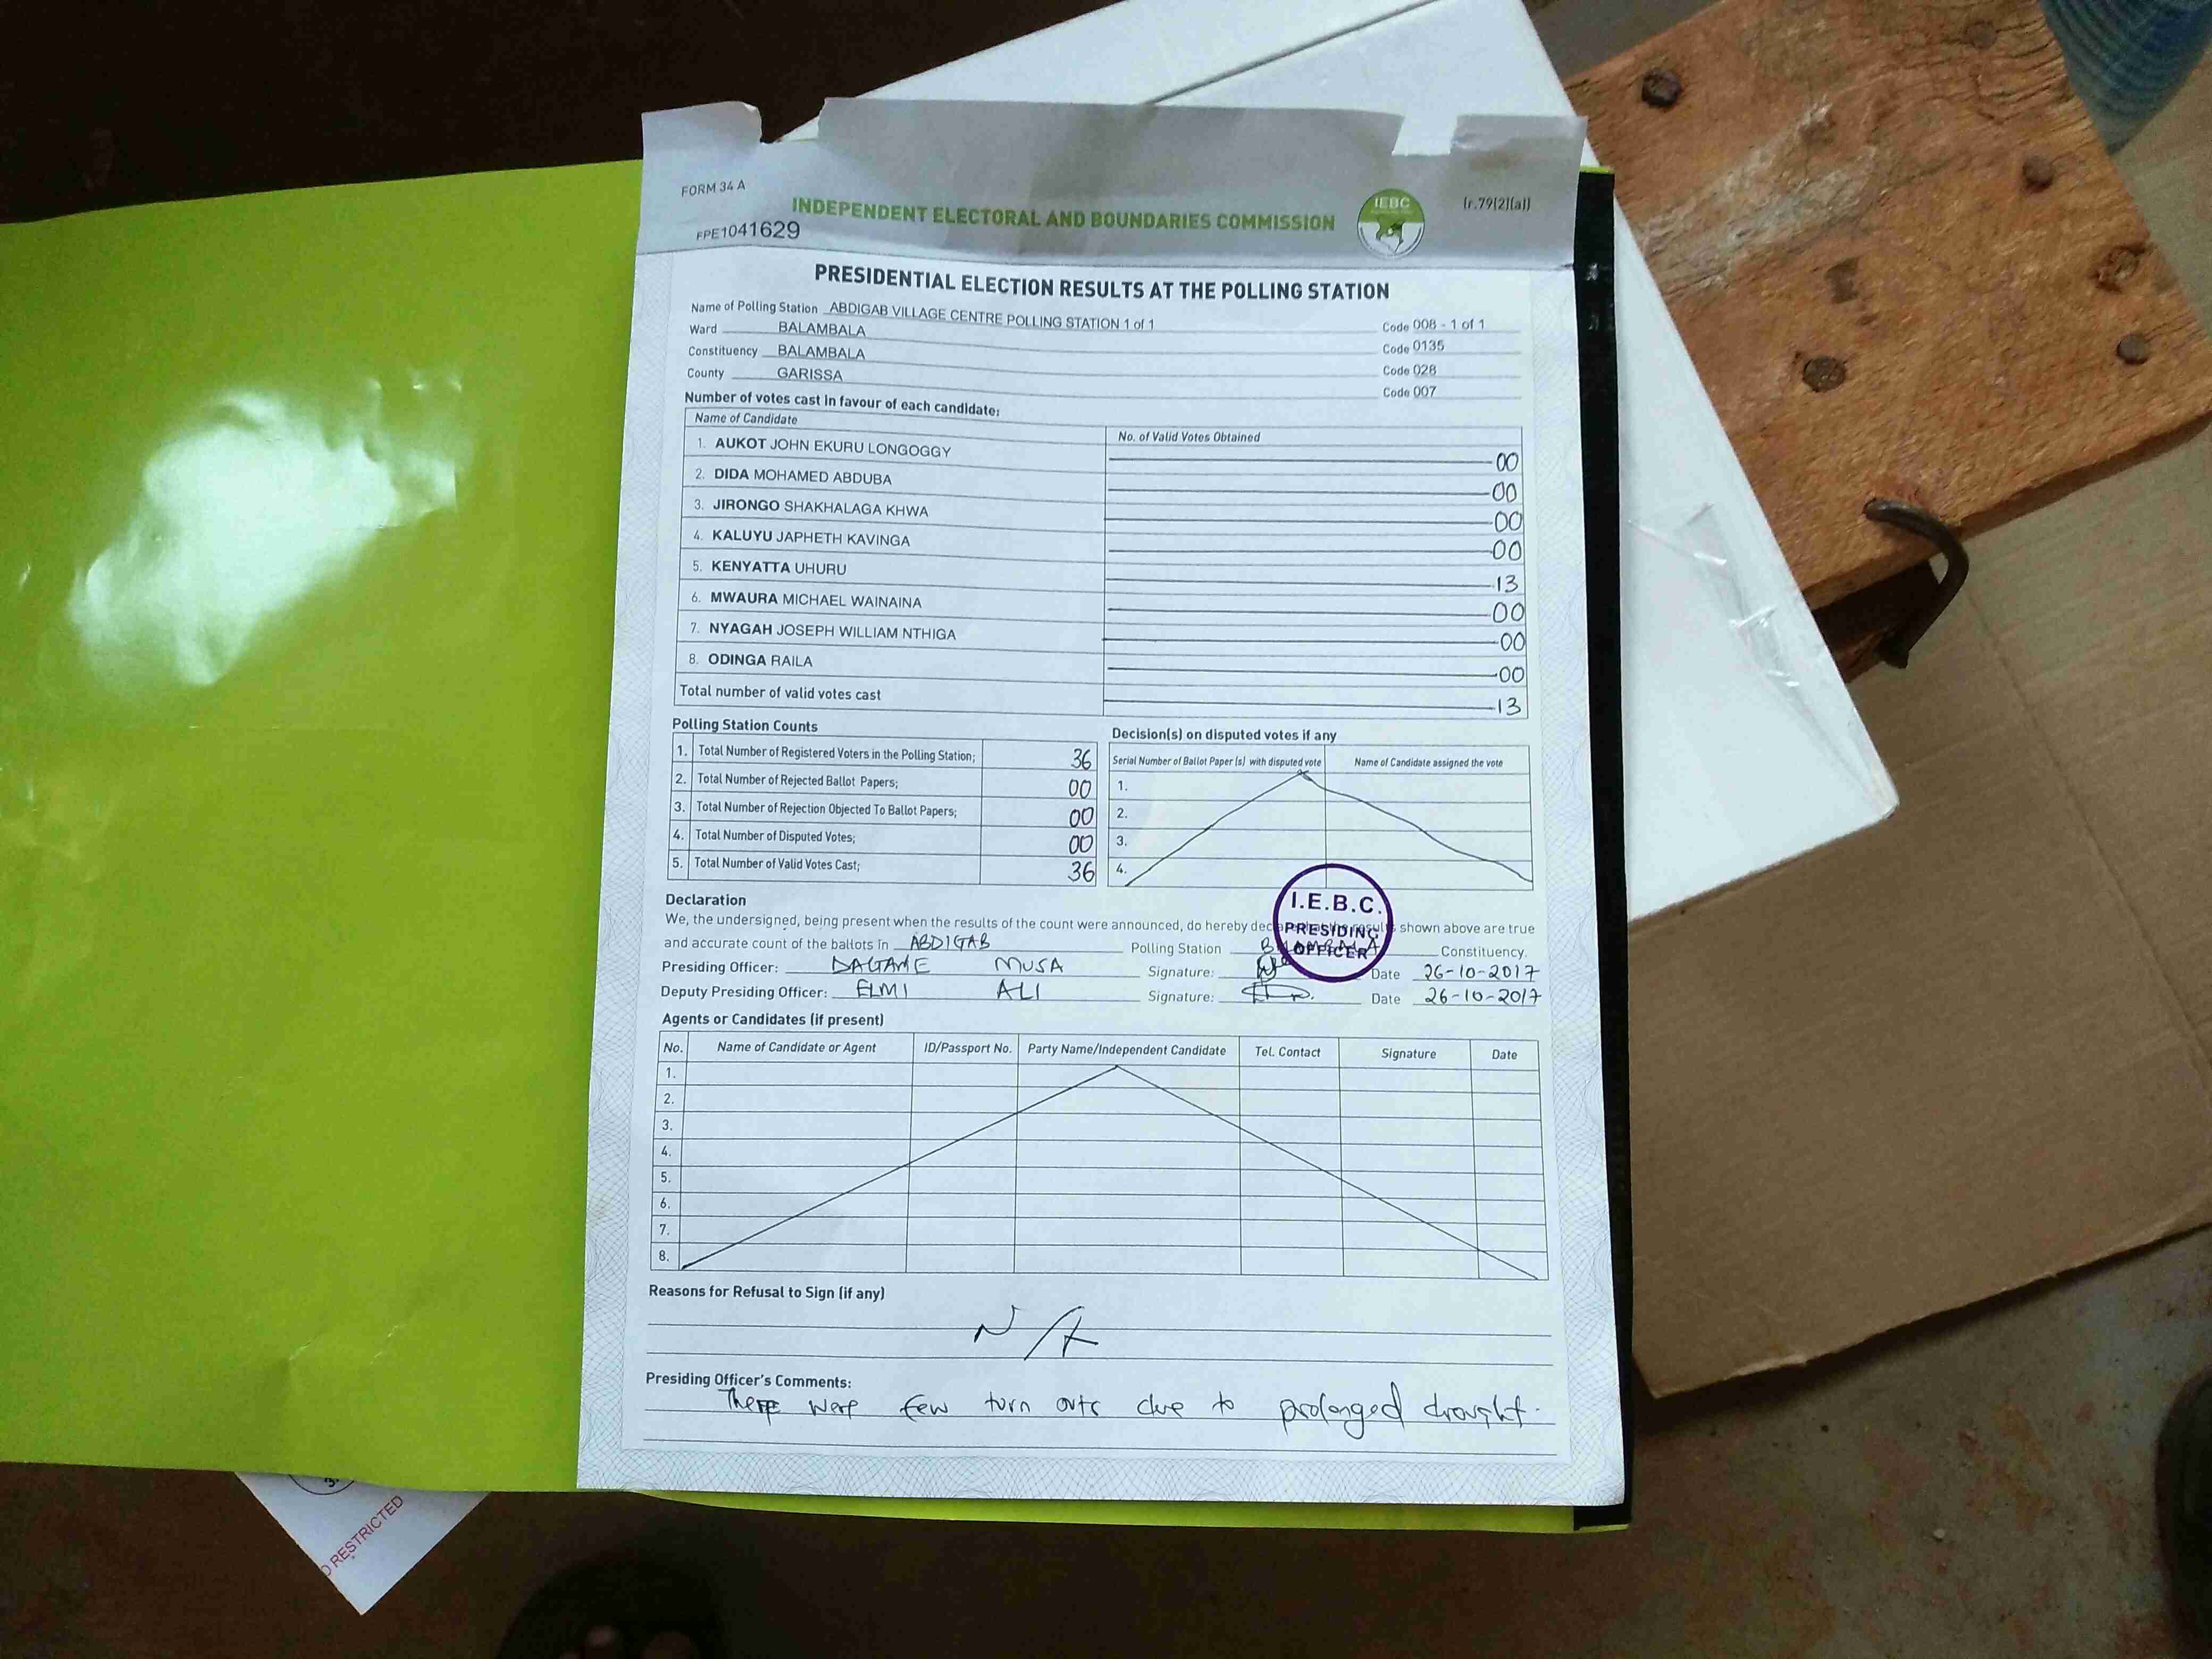 FORM 34 A
INDEPENDENT ELECTORAL AND BOUNDARIES COMMISSION
IEBC
(r.79(2)(a))
FPE1041629
PRESIDENTIAL ELECTION RESULTS AT THE POLLING STATION
Name of Polling Station ABDIGAB VILLAGE CENTRE POLLING STATION 1 of 1 Code 008 - 1 of 1
Ward BALAMBALA Code 0135
Constituency BALAMBALA Code 028
County GARISSA Code 007
Number of votes cast in favour of each candidate:
Name of Candidate No. of Valid Votes Obtained
1. AUKOT JOHN EKURU LONGOGGY 00
2. DIDA MOHAMED ABDUBA 00
3. JIRONGO SHAKHALAGA KHWA 00
4. KALUYU JAPHETH KAVINGA 00
5. KENYATTA UHURU 13
6. MWAURA MICHAEL WAINAINA 00
7. NYAGAH JOSEPH WILLIAM NTHIGA 00
8. ODINGA RAILA 00
Total number of valid votes cast 13
Polling Station Counts
1. Total Number of Registered Voters in the Polling Station; 36
2. Total Number of Rejected Ballot Papers; 00
3. Total Number of Rejection Objected To Ballot Papers; 00
4. Total Number of Disputed Votes; 00
5. Total Number of Valid Votes Cast; 36
Decision(s) on disputed votes if any
Serial Number of Ballot Paper (s) with disputed vote Name of Candidate assigned the vote
1.
2.
3.
4.
I.E.B.C.
PRESIDING
OFFICER
Declaration
We, the undersigned, being present when the results of the count were announced, do hereby shown above are true
and accurate count of the ballots in ABDIGAB Polling Station BALAMBALA Constituency.
Presiding Officer: DAGANE MUSA Signature: Date 26-10-2017
Deputy Presiding Officer: ELMI ALI Signature: Date 26-10-2017
Agents or Candidates (if present)
No. Name of Candidate or Agent ID/Passport No. Party Name/Independent Candidate Tel. Contact Signature Date
1.
2.
3.
4.
5.
6.
7.
8.
Reasons for Refusal to Sign (if any)
N/A
Presiding Officer's Comments:
There were few turn outs due to prolonged drought.
RESTRICTED